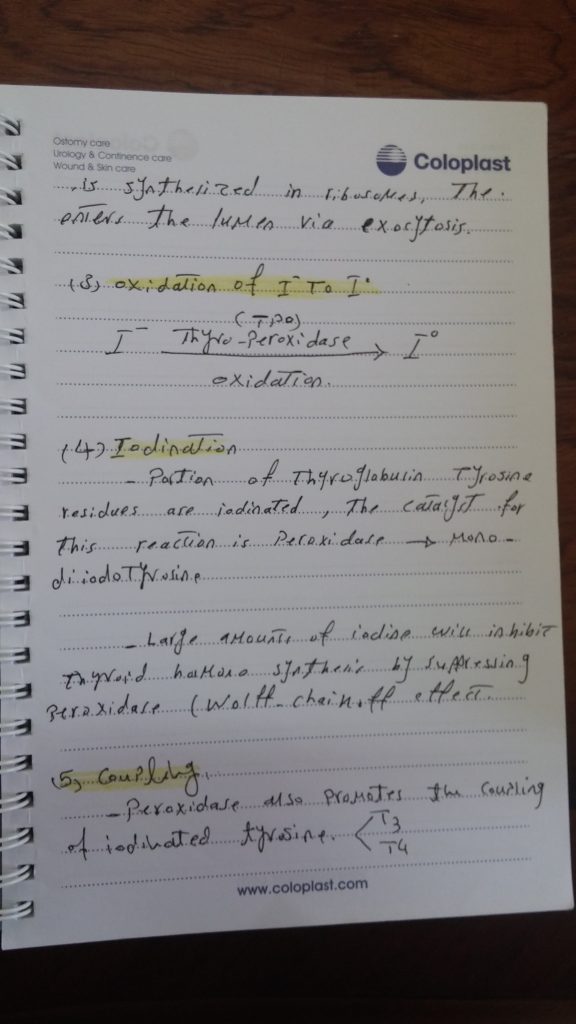 Ostomy care
Urology & Continence care
Wound & Skin care
Coloplast
is synthesized in ribosomes, The
enters the lumen via exocytosis.
(3) oxidation of I⁻ To I°
(TPO)
I⁻ Thyro-Peroxidase → I°
oxidation.
(4) Iodination
- Portion of Thyroglobulin Tyrosine
residues are iodinated, the catalyst for
this reaction is Peroxidase → Mono-
diiodotyrosine
- Large amounts of iodine will inhibit
thyroid hormone synthesis by suppressing
Peroxidase (Wolff-chainoff effect.
(5) Coupling.
- Peroxidase also promotes the coupling
of iodinated tyrosine. < T3
T4
www.coloplast.com